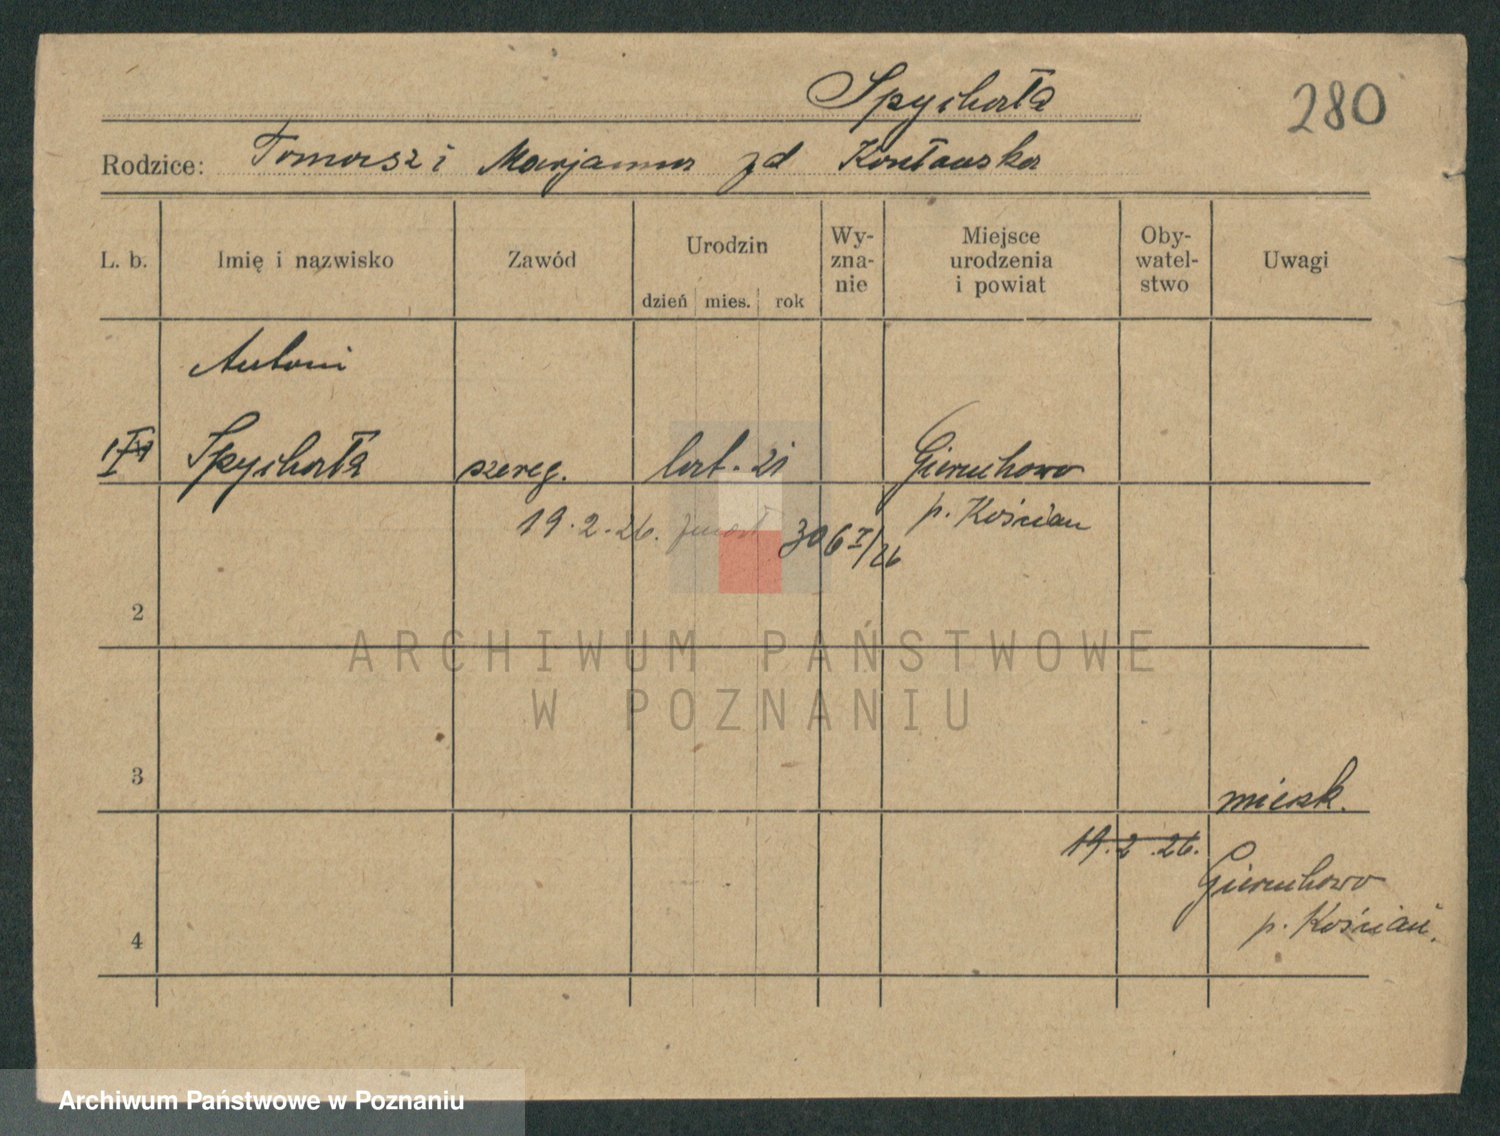 Spychała
280
Rodzice: Tomasz i Marjanna zd
L. b.
Imię i nazwisko
Zawód
Urodzin
dzień mies. rok
Wy-
zna-
nie
Miejsce
urodzenia
i powiat
Oby-
watel-
stwo
Uwagi
Antoni
Spychała szereg. lat. 21
p. Kościan
19.2.26. 306 I/26
2
3
mieszk.
19.2.26.
4
p. Kościan.
ARCHIWUM PAŃSTWOWE
W POZNANIU
Archiwum Państwowe w Poznaniu